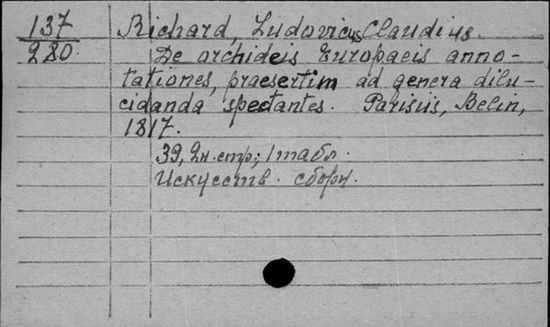 137 Richard, Ludovicus Claudius.
280. De orchideis Europaeis anno-
tationes, praesertim ad genera dilu-
cidanda spectantes. Parisiis, Belin,
1817.
39, 2н. стр; 1 табл.
Искусств. сборн.